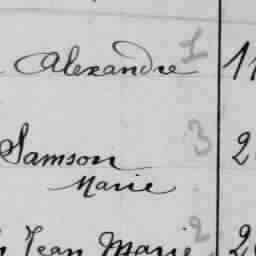 Alexandre 1
Samson 3
Marie
Jean Marie 2